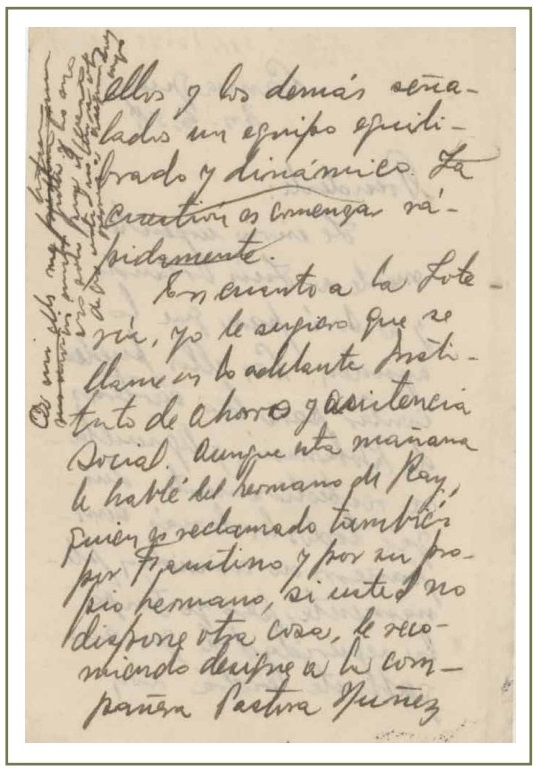 ellos y los demás seña-
lados un equipo equili-
brado y dinámico. La
cuestión es comenzar rá-
pidamente.
En cuanto a la Lote-
ría, yo le sugiero que se
llame en lo adelante Insti-
tuto de Ahorro y Asistencia
Social. Aunque esta mañana
le hablé del hermano de Ray,
quien es reclamado también
por Faustino y por su pro-
pio hermano, si usted no
dispone otra cosa, le reco-
miendo designe a la com-
pañera Pastora Nuñez